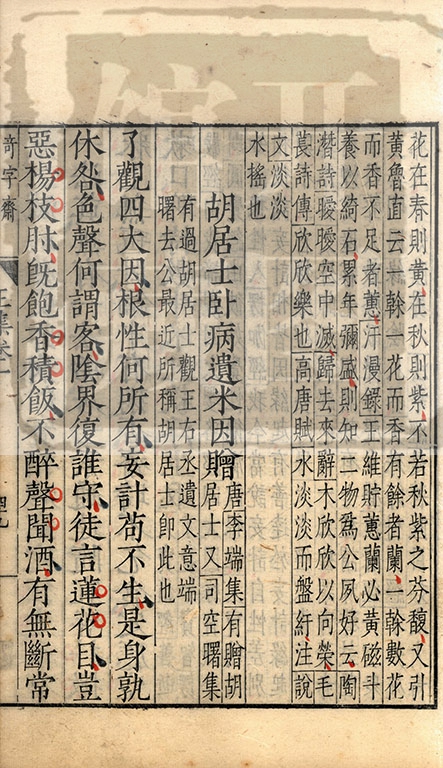 花在春則黄在秋則紫不若秋紫之芬馥又引
黄魯直云一榦一花而香有餘者蘭一榦數花
而香不足者蕙汗漫錄王維貯蕙蘭必黄磁斗
養以綺石累年彌盛則知二物爲公夙好云陶
潛詩曖曖空中滅歸去來辭木欣欣以向榮毛
萇詩傳欣欣樂也高唐賦水淡淡而盤紆注說
文淡淡
水搖也
胡居士卧病遺米因贈
唐李端集有贈胡
居士又司空曙集
有過胡居士觀王右丞遺文意端
曙去公最近所稱胡居士卽此也
了觀四大因根性何所有妄計苟不生是身孰
休咎色聲何謂客陰界復誰守徒言蓮花目豈
惡楊枝肘旣飽香積飯不醉聲聞酒有無斷常
奇字齋